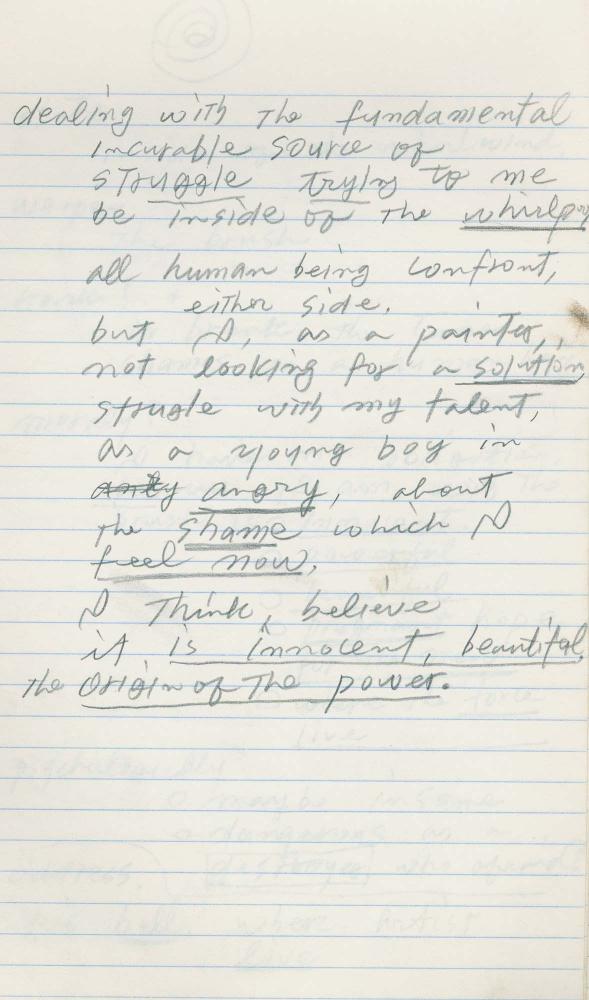 dealing with the fundamental
incurable source of
struggle trying to me
be inside of the whirlp
all human being confront,
either side.
but I, as a painter,
not looking for a solution
strugle with my talent,
as a young boy in
angry, about
the shame which I
feel now.
I think, believe
it is innocent, beautiful,
the origin of the power.